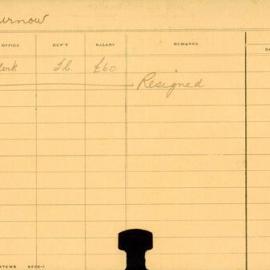 urnow
OFFICE DEP'T SALARY REMARKS
lerk £60
Resigned